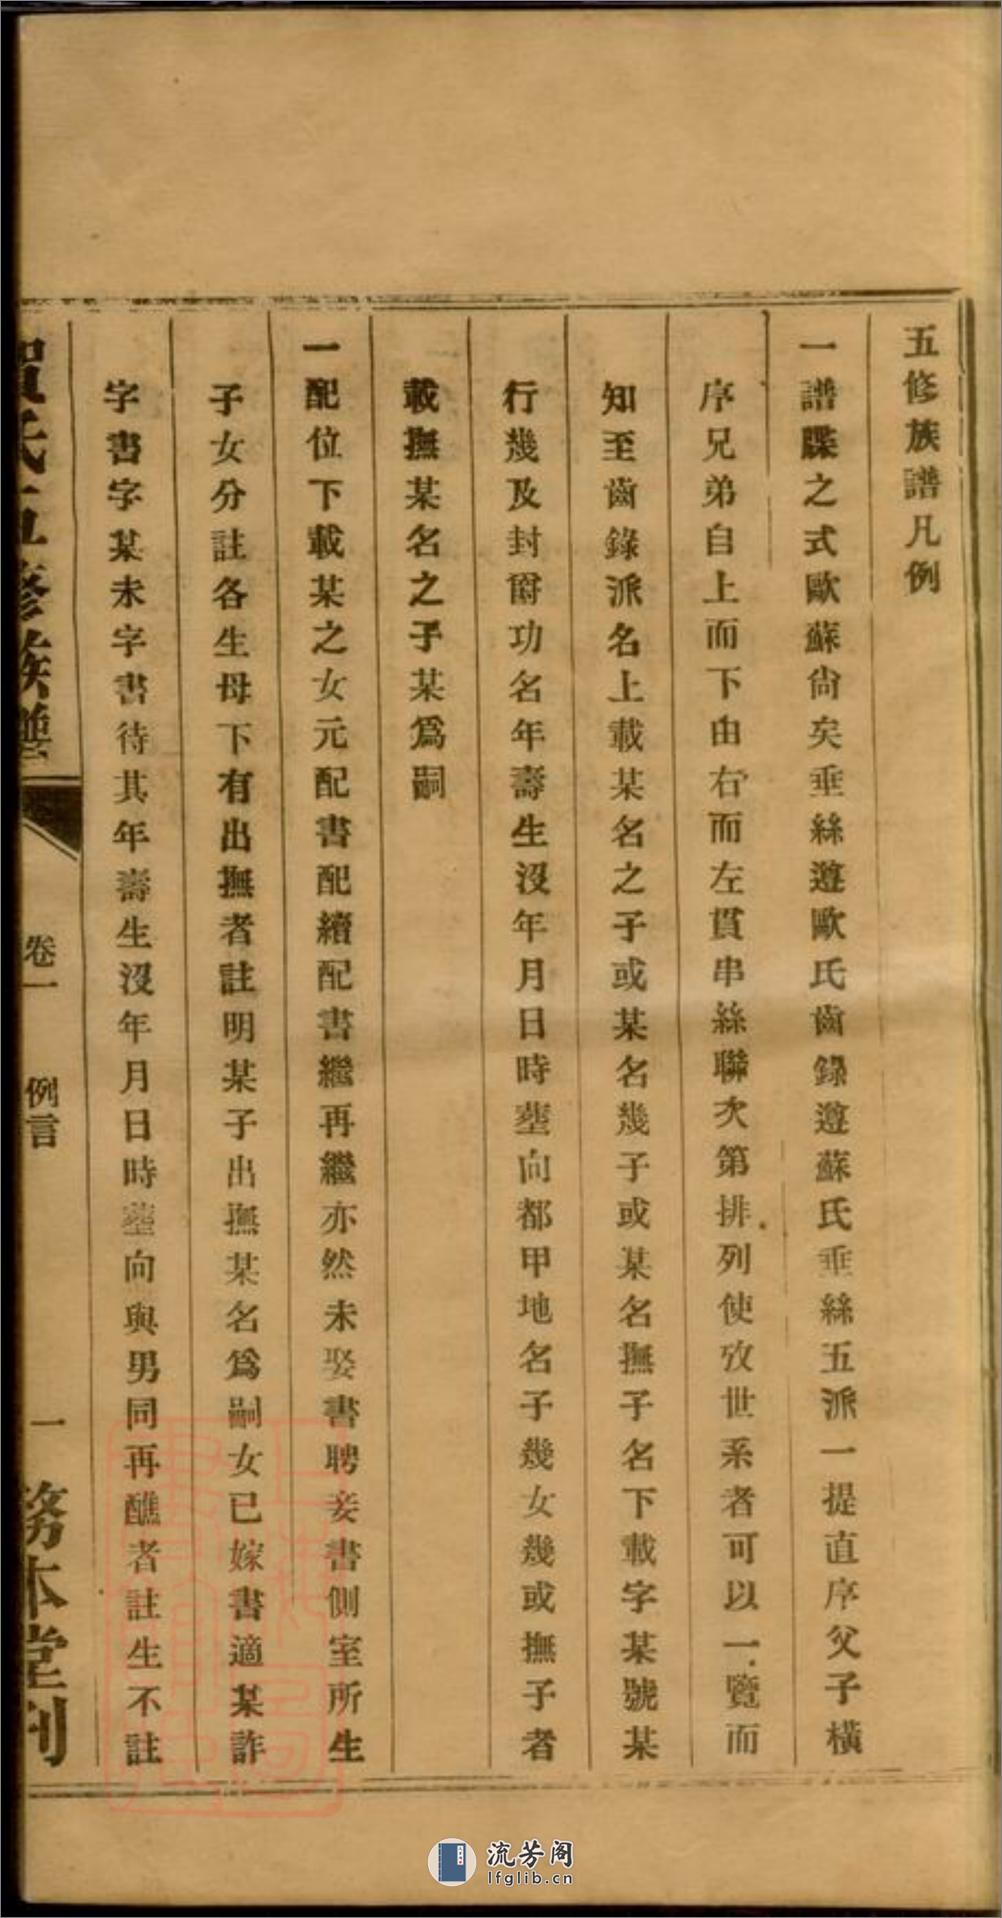 五修族譜凡例
一譜牒之式歐蘇尙矣垂絲遵歐氏齒錄遵蘇氏垂絲五派一提直序父子橫
序兄弟自上而下由右而左貫串絲聯次第排列使攷世系者可以一覽而
知至齒錄派名上載某名之子或某名幾子或某名撫子名下載字某號某
行幾及封爵功名年壽生沒年月日時塟向都甲地名子幾女幾或撫子者
載撫某名之子某爲嗣
一配位下載某之女元配書配續配書繼再繼亦然未娶書聘妾書側室所生
子女分註各生母下有出撫者註明某子出撫某名爲嗣女已嫁書適某許
字書字某未字書待其年壽生沒年月日時塟向與男同再醮者註生不註
賀氏五修族譜
卷一
例言
一
務本堂刊
流芳阁
lfglib.cn